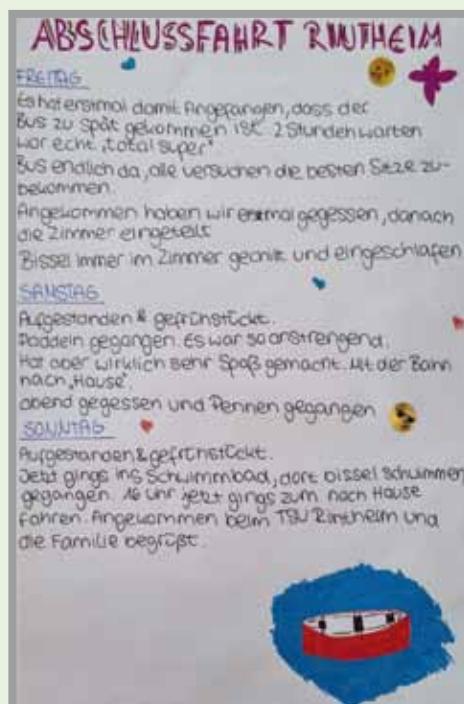 ABSCHLUSSFAHRT RINTHEIM
FREITAG
Es hat erstmal damit Angefangen, dass der
Bus zu spät gekommen ist. 2 Stunden warten
war echt „total super"
Bus endlich da, alle versuchen die besten Sitze zu-
bekommen.
Angekommen haben wir erstmal gegessen, danach
die Zimmer eingeteilt
Bissel immer im Zimmer gechillt und eingeschlafen
SAMSTAG
Aufgestanden & gefrühstückt.
Paddeln gegangen. Es war so anstrengend.
Hat aber wirklich sehr Spaß gemacht. Mit der Bahn
nach „Hause"
abend gegessen und Pennen gegangen
SONNTAG
Aufgestanden & gefrühstückt.
Jetzt gings ins Schwimmbad, dort bissel schwimmen
gegangen. 16 Uhr jetzt gings zum nach Hause
fahren. Angekommen beim TSV Rintheim und
die Familie begrüßt.